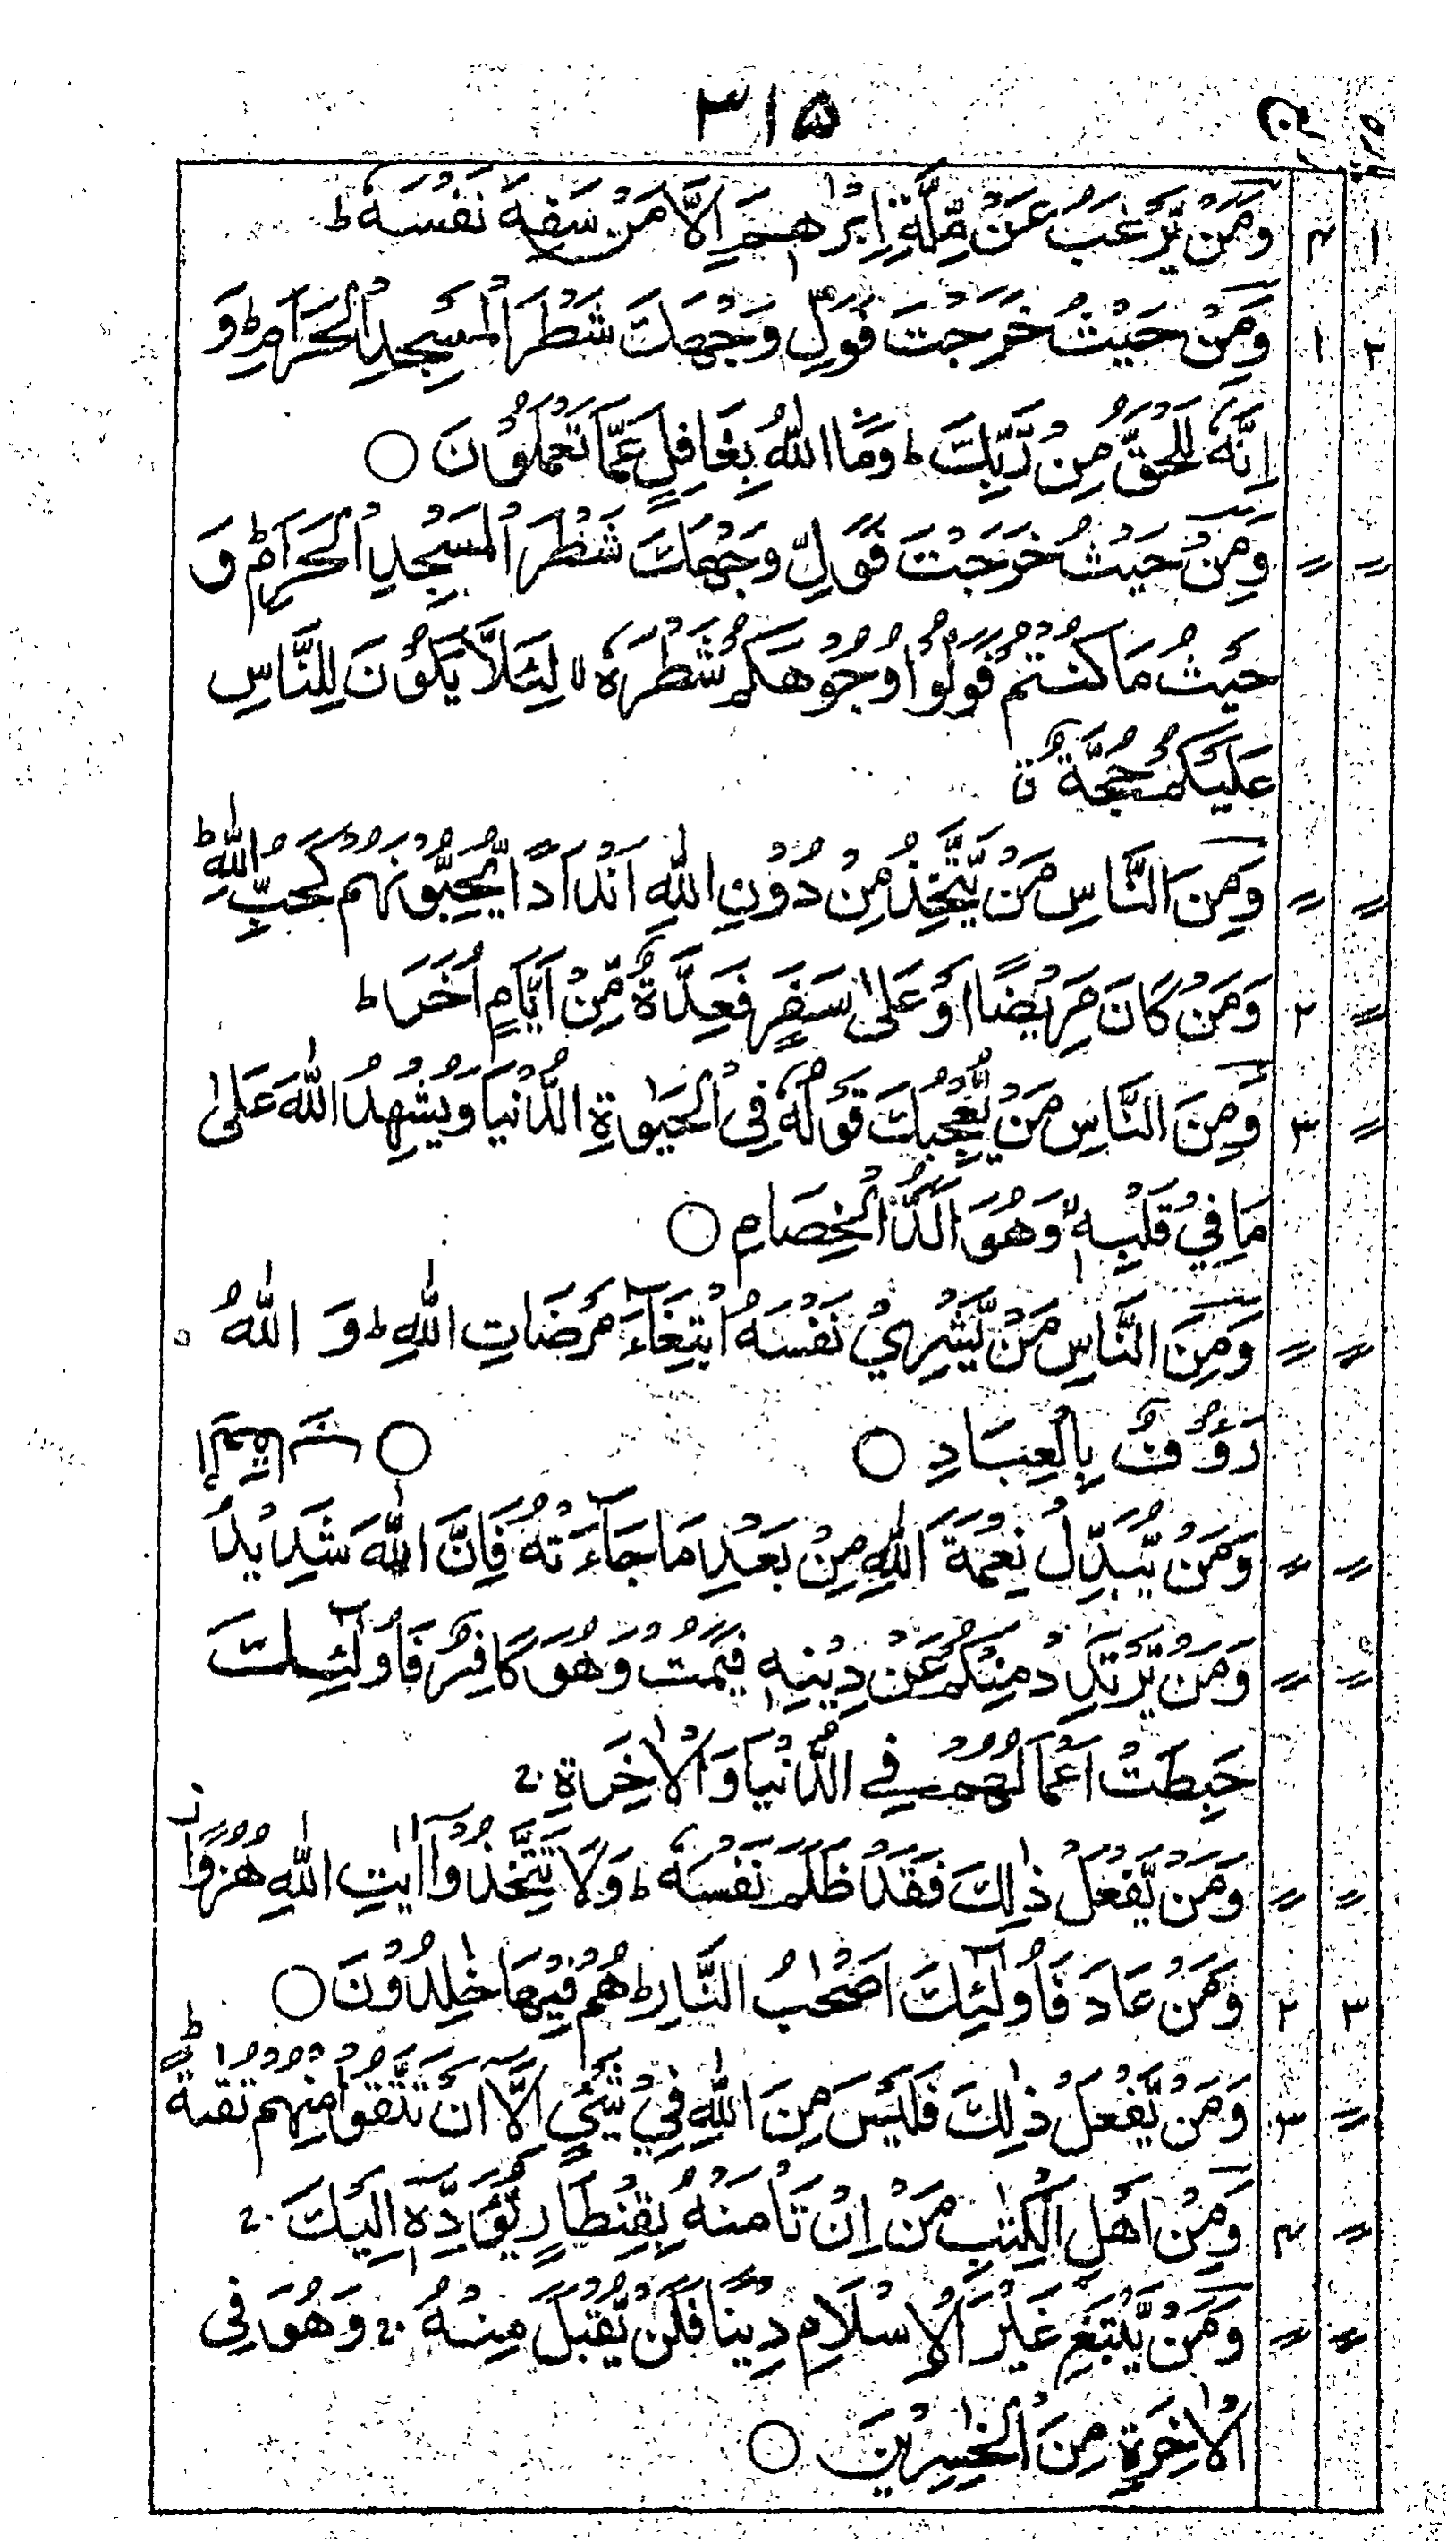 ۳۱۵
۱ ۴ وَمَنْ يَّرْغَبُ عَنْ مِّلَّةِ اِبْرٰهٖمَ اِلَّا مَنْ سَفِهَ نَفْسَهٗ ط
۲ ۱ وَمِنْ حَيْثُ خَرَجْتَ فَوَلِّ وَجْهَكَ شَطْرَ الْمَسْجِدِ الْحَرَامِ ط وَ
اِنَّهٗ لَلْحَقُّ مِنْ رَّبِّكَ ط وَمَا اللّٰهُ بِغَافِلٍ عَمَّا تَعْمَلُوْنَ ○
〃 〃 وَمِنْ حَيْثُ خَرَجْتَ فَوَلِّ وَجْهَكَ شَطْرَ الْمَسْجِدِ الْحَرَامِ ط وَ
حَيْثُ مَا كُنْتُمْ فَوَلُّوْا وُجُوْهَكُمْ شَطْرَهٗ لا لِئَلَّا يَكُوْنَ لِلنَّاسِ
عَلَيْكُمْ حُجَّةٌ ق
〃 〃 وَمِنَ النَّاسِ مَنْ يَّتَّخِذُ مِنْ دُوْنِ اللّٰهِ اَنْدَادًا يُّحِبُّوْنَهُمْ كَحُبِّ اللّٰهِ ط
〃 ۲ وَمَنْ كَانَ مَرِيْضًا اَوْ عَلٰى سَفَرٍ فَعِدَّةٌ مِّنْ اَيَّامٍ اُخَرَ ط
〃 ۳ وَمِنَ النَّاسِ مَنْ يُّعْجِبُكَ قَوْلُهٗ فِى الْحَيٰوةِ الدُّنْيَا وَيُشْهِدُ اللّٰهَ عَلٰى
مَا فِيْ قَلْبِهٖ لا وَهُوَ اَلَدُّ الْخِصَامِ ○
〃 〃 وَمِنَ النَّاسِ مَنْ يَّشْرِيْ نَفْسَهُ ابْتِغَآءَ مَرْضَاتِ اللّٰهِ ط وَ اللّٰهُ
رَءُوْفٌ بِالْعِبَادِ ○ ○
〃 〃 وَمَنْ يُّبَدِّلْ نِعْمَةَ اللّٰهِ مِنْ بَعْدِ مَا جَآءَتْهُ فَاِنَّ اللّٰهَ شَدِيْدُ
〃 〃 وَمَنْ يَّرْتَدِدْ مِنْكُمْ عَنْ دِيْنِهٖ فَيَمُتْ وَهُوَ كَافِرٌ فَاُولٰٓئِكَ
حَبِطَتْ اَعْمَالُهُمْ فِي الدُّنْيَا وَالْاٰخِرَةِ ج
〃 〃 وَمَنْ يَّفْعَلْ ذٰلِكَ فَقَدْ ظَلَمَ نَفْسَهٗ ط وَلَا تَتَّخِذُوْٓا اٰيٰتِ اللّٰهِ هُزُوًا ز
۳ ۲ وَمَنْ عَادَ فَاُولٰٓئِكَ اَصْحٰبُ النَّارِ ط هُمْ فِيْهَا خٰلِدُوْنَ ○
〃 ۳ وَمَنْ يَّفْعَلْ ذٰلِكَ فَلَيْسَ مِنَ اللّٰهِ فِيْ شَيْءٍ اِلَّآ اَنْ تَتَّقُوْا مِنْهُمْ تُقٰىةً ط
〃 ۴ وَمِنْ اَهْلِ الْكِتٰبِ مَنْ اِنْ تَاْمَنْهُ بِقِنْطَارٍ يُّؤَدِّهٖٓ اِلَيْكَ ج
〃 〃 وَمَنْ يَّبْتَغِ غَيْرَ الْاِسْلَامِ دِيْنًا فَلَنْ يُّقْبَلَ مِنْهُ ج وَهُوَ فِى
الْاٰخِرَةِ مِنَ الْخٰسِرِيْنَ ○